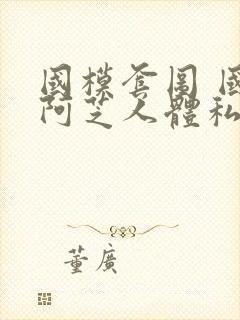 國模套圖 國
阿芝人體私
董廣